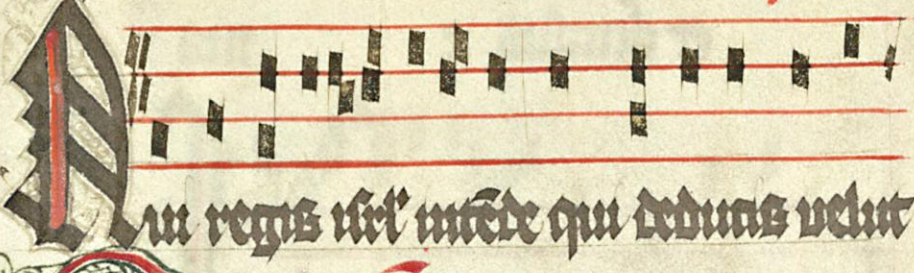 Qui regis isrl' intēde qui deducis velut